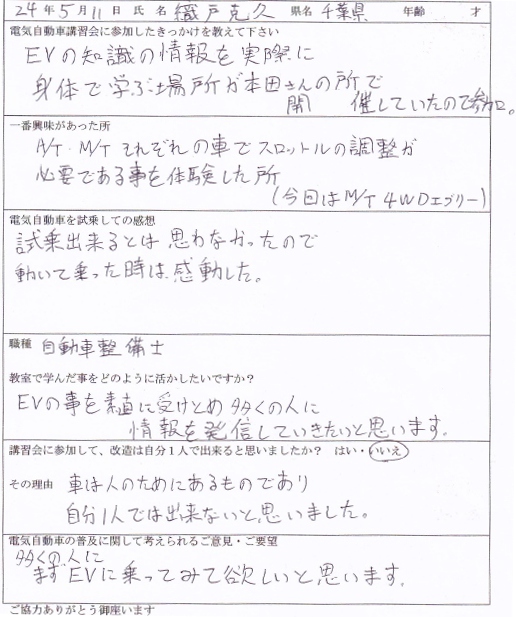 24年5月11日 氏名 織戸克久 県名 千葉県 年齢 才
電気自動車講習会に参加したきっかけを教えて下さい
EVの知識の情報を実際に
身体で学ぶ場所が本田さんの所で
開 催していたので参加。
一番興味があった所
A/T・M/Tそれぞれの車でスロットルの調整が
必要である事を体験した所
(今回はM/T 4WDエブリー)
電気自動車を試乗しての感想
試乗出来るとは思わなかったので
動いて乗った時は感動した。
職種 自動車整備士
教室で学んだ事をどのように活かしたいですか?
EVの事を素直に受けとめ多くの人に
情報を発信していきたいと思います。
講習会に参加して、改造は自分1人で出来ると思いましたか? はい・いいえ
その理由 車は人のためにあるものであり
自分1人では出来ないと思いました。
電気自動車の普及に関して考えられるご意見・ご要望
多くの人に
まずEVに乗ってみて欲しいと思います。
ご協力ありがとう御座います